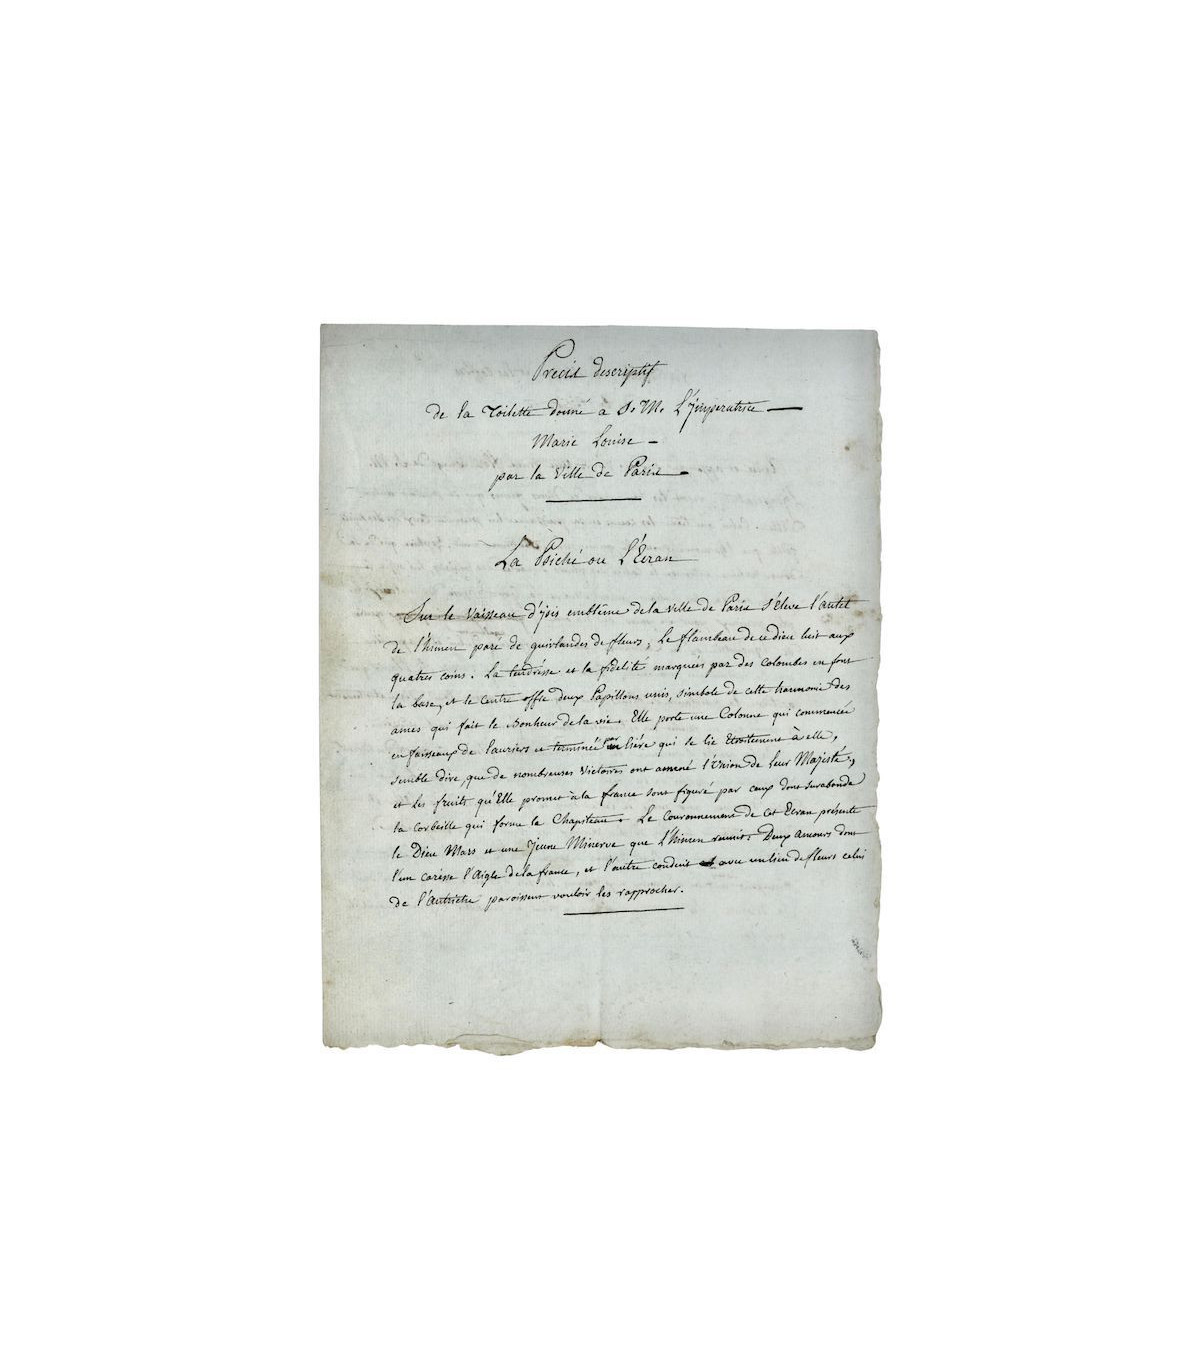 Precis descriptif
de la Toilette donné a S. M. L'Jmperatrice —
Marie Louise —
par la Ville de Paris —
La Psiché ou L'Ecran
Sur le Vaisseau d'Jsis emblême de la ville de Paris s'éleve l'autel
de l'himen paré de guirlandes de fleurs, Le flambeau de ce dieu luit aux
quatres coins. La tendresse et la fidelité marquées par des colombes en font
la base, et le Centre offre deux Papillons unis, simbole de cette harmonie des
ames qui fait le Bonheur de la vie. Elle porte une Colonne qui commencée
en faisseaux de Lauriers et terminée par liére qui se lie Etroitement à elle,
semble dire, que de nombreuses Victoires ont amené l'Union de Leur Majesté,
et les fruits qu'Elle promet à la france sont figuré par ceux dont surabonde
la corbeille qui forme la Chapiteau. Le couronnement de cet Ecran présente
le Dieu Mars et une Jeune Minerve que L'himen reunit. Deux amours dont
l'un caresse l'Aigle de la france, et l'autre conduit avec un lien de fleurs celui
de l'Autriche paroissent vouloir les rapprocher.